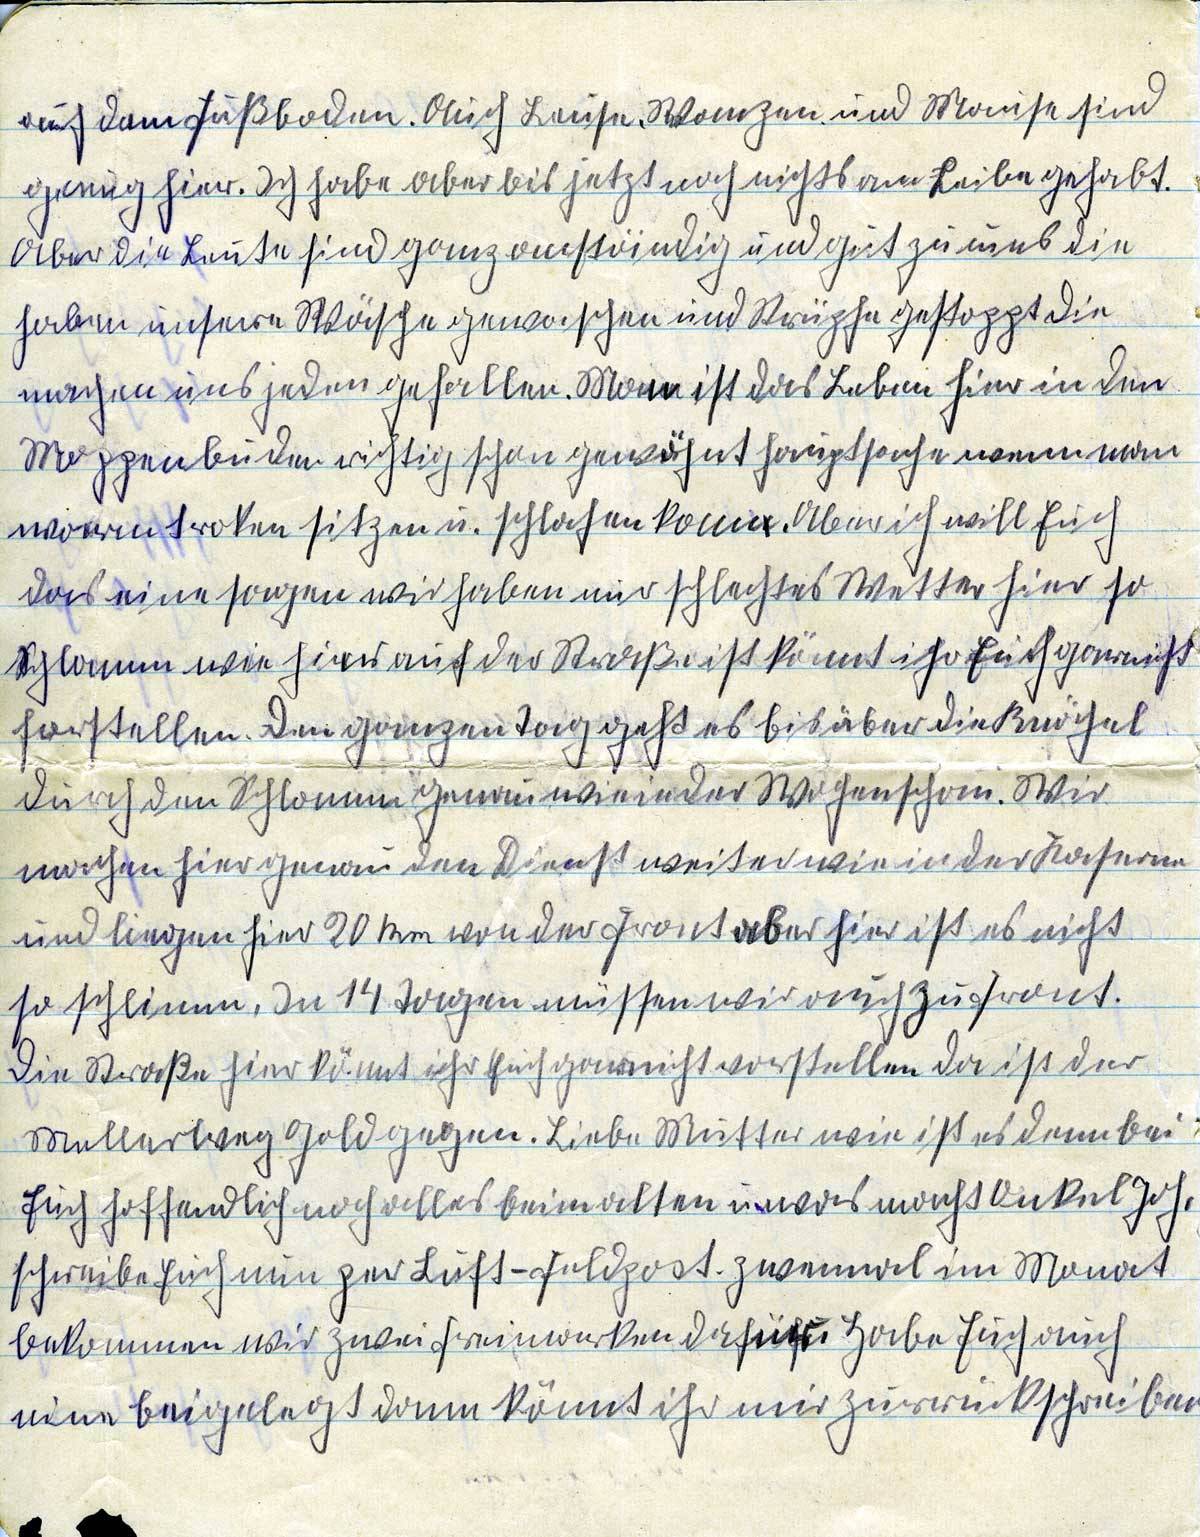 auf dem Fußboden. Auch Leuse, Wanzen und Mäuse sind
genug hier. Ich habe aber bis jetzt noch nichts am Leibe gehabt.
Aber die Leute sind ganz anständig und gut zu uns die
haben unsere Wäsche gewaschen und Strüpfe gestoppt die
machen uns jeden gefallen. Man ist das Leben hier in den
buden richtig schon gewöhnt hauptsache wenn man
warm troken sitzen u. schlafen kann. Aber ich will Euch
das eine sagen wir haben nur schlechtes Wetter hier so
Schlamm wie hier auf der Straße ist könnt ihr Euch garnicht
forstellen. Den ganzen Tag geht es bis über die Knöchel
durch den Schlamm genau wie in der Wahnerschei. Wir
machen hier genau den Dienst weiter wie in der Kaserne
und liegen hier 20 km von der Front aber hier ist es nicht
so schlimm. In 14 Tagen müssen wir auch zu Front.
Die Straße hier könnt ihr Euch garnicht vorstellen da ist der
Mullerweg Gold gegen. Liebe Mutter wie ist es denn bei
Euch hoffendlich noch alles beim alten u. was macht Onkel Joh.
schreibe Euch nun per Luft-Feldpost. zweimal im Monat
bekommen wir zwei Freimarken dafür Habe Euch auch
eine beigelegt dann könnt ihr mir zurrückschreiben